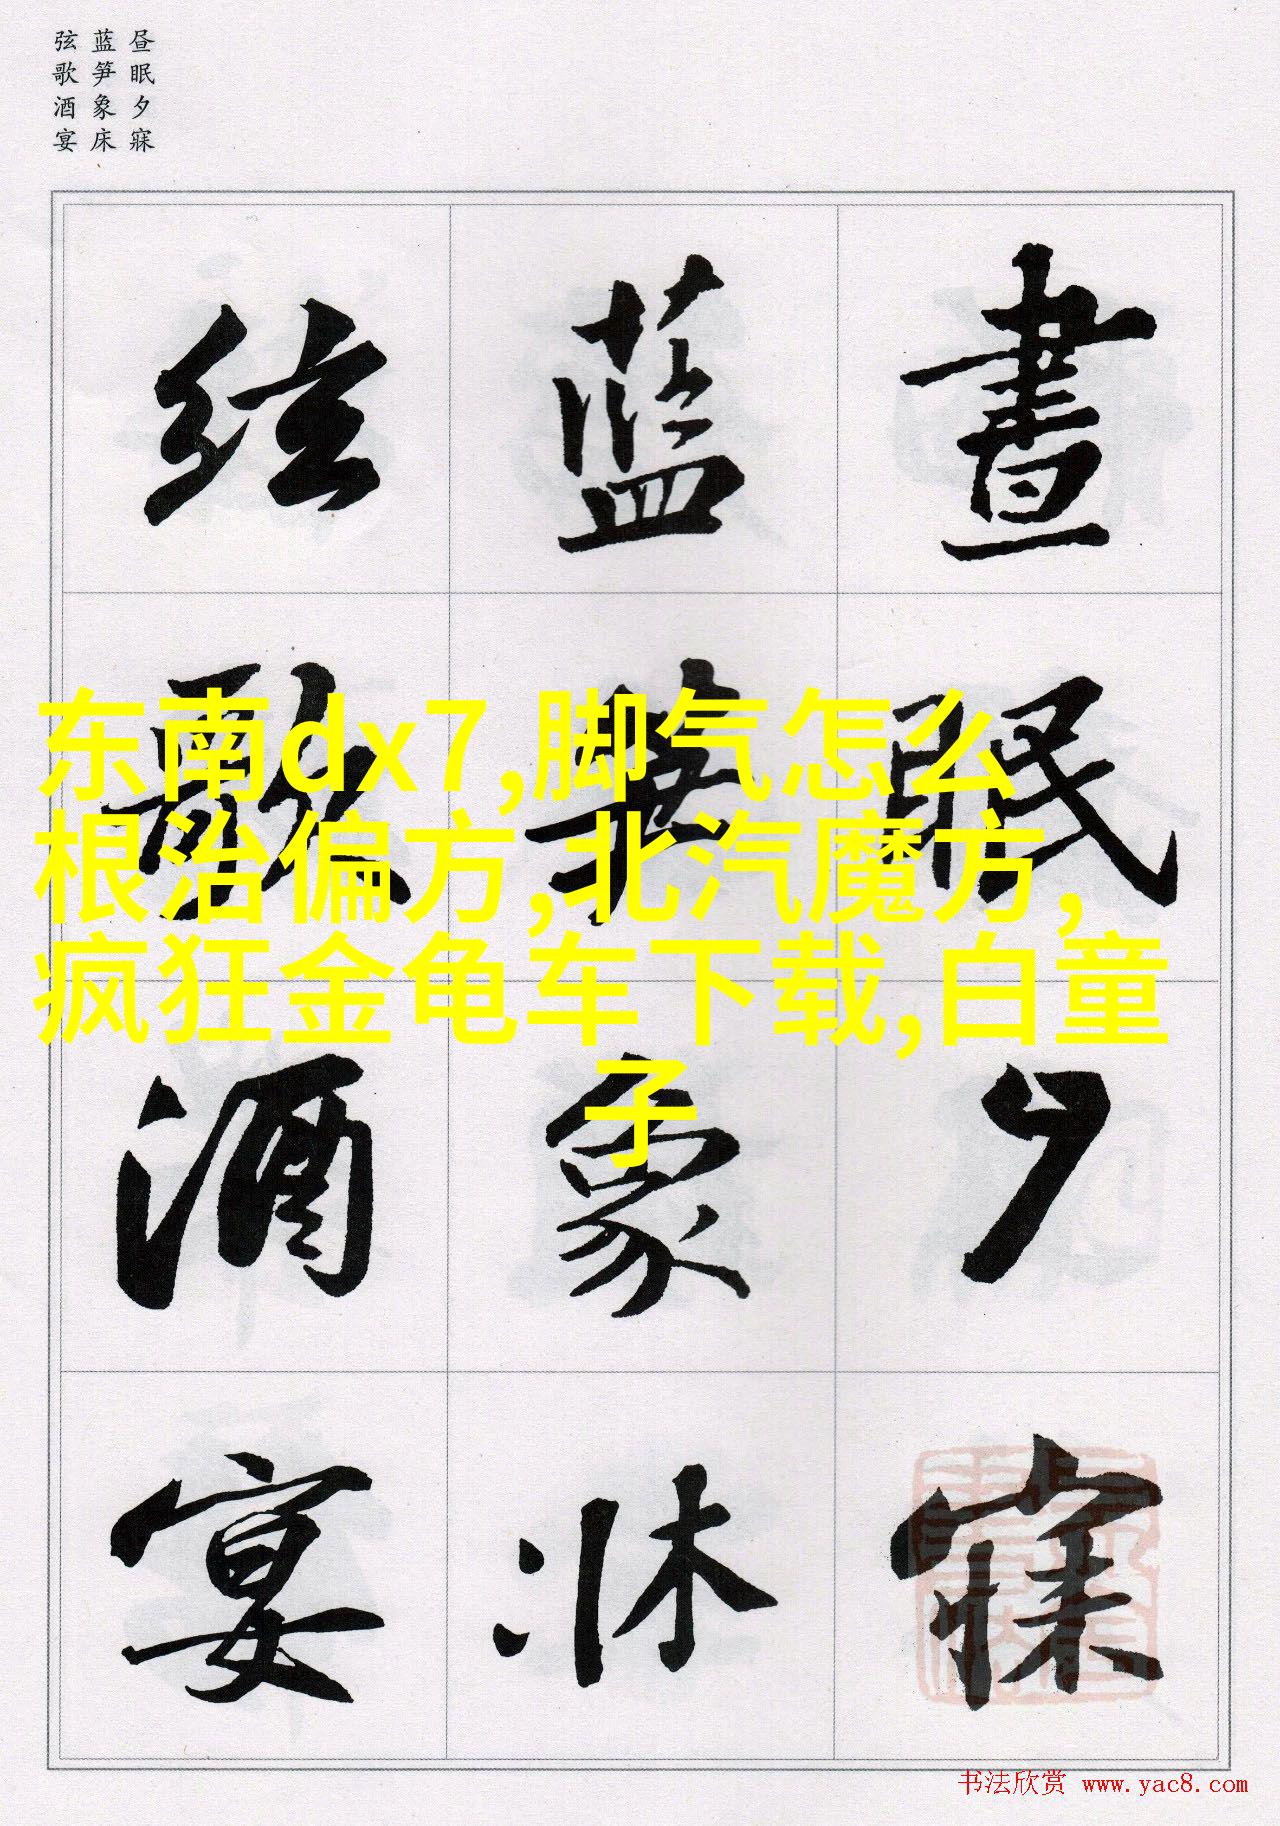 昼眠夕寐
蓝笋象床
弦歌酒宴
晝眠夕寐
蓝笋象床
弦歌酒宴
东南dx7,脚气怎么
根治偏方,北汽魔方,
疯狂金龟车下载,白童
子
书法欣赏 www.yac8.com